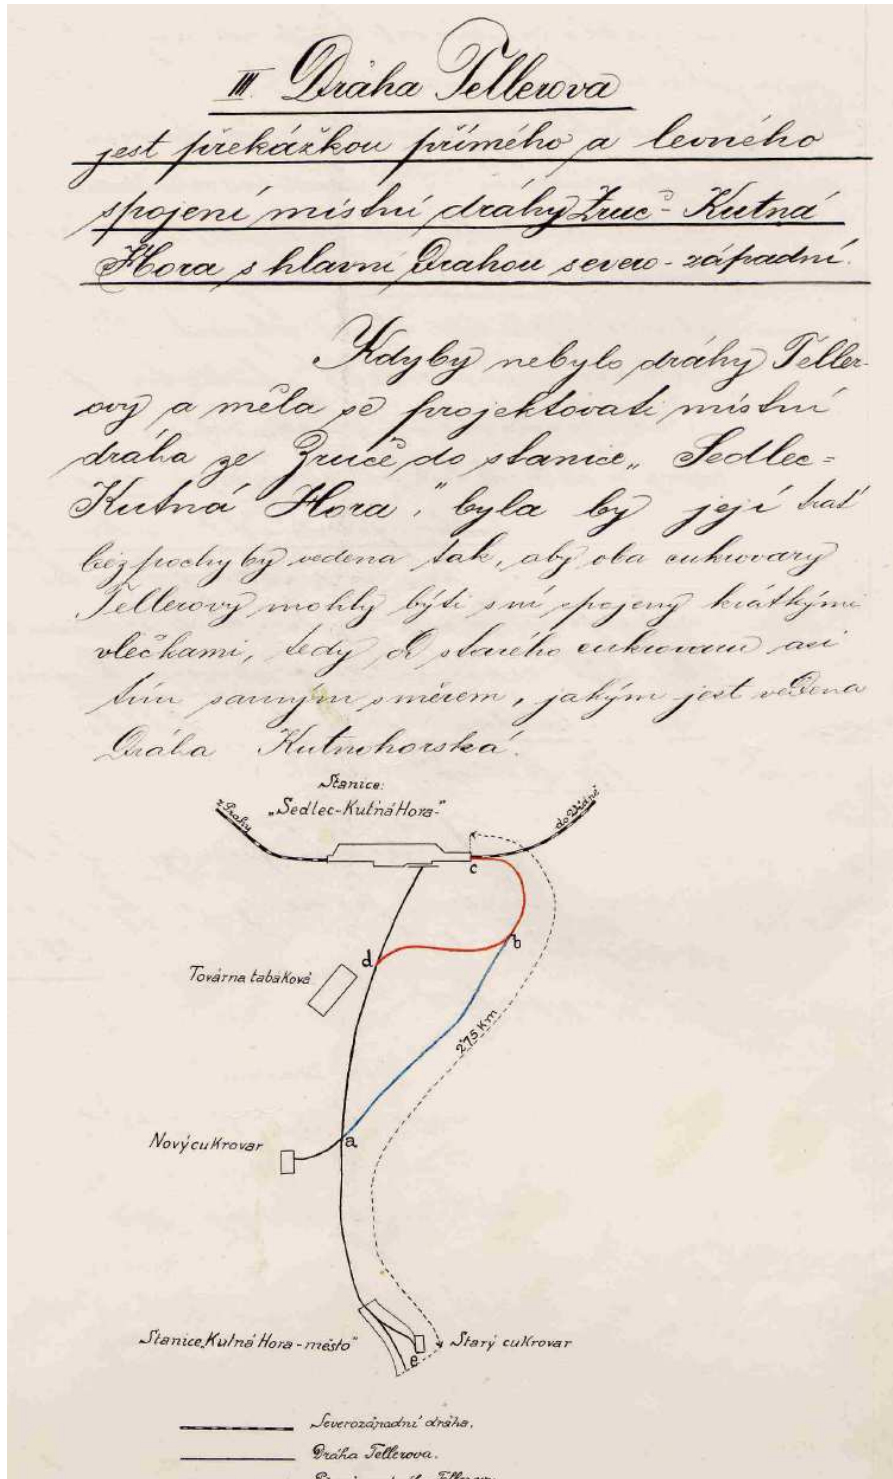 III. Dráha Tellerova
jest překážkou přímého a levného
spojení místní dráhy Zruč - Kutná
Hora s hlavní Drahou severo-západní.
Kdyby nebylo dráhy Teller-
ovy a měla se projektovati místní
dráha ze Zruče do stanice „Sedlec=
Kutná Hora", byla by její trať
bezpochyby vedena tak, aby oba cukrovary
Tellerovy mohly býti s ní spojeny krátkými
vlečkami, tedy od starého cukrovaru asi
tím samým směrem, jakým jest vedena
Dráha Kutnohorská.
Stanice:
„Sedlec-Kutná Hora"
z Prahy
do Vídně
c
b
d
Továrna tabáková
2·75 Km
Nový cukrovar
a
Stanice „Kutná Hora-město"
Starý cukrovar
e
Severozápadní dráha.
Dráha Tellerova.